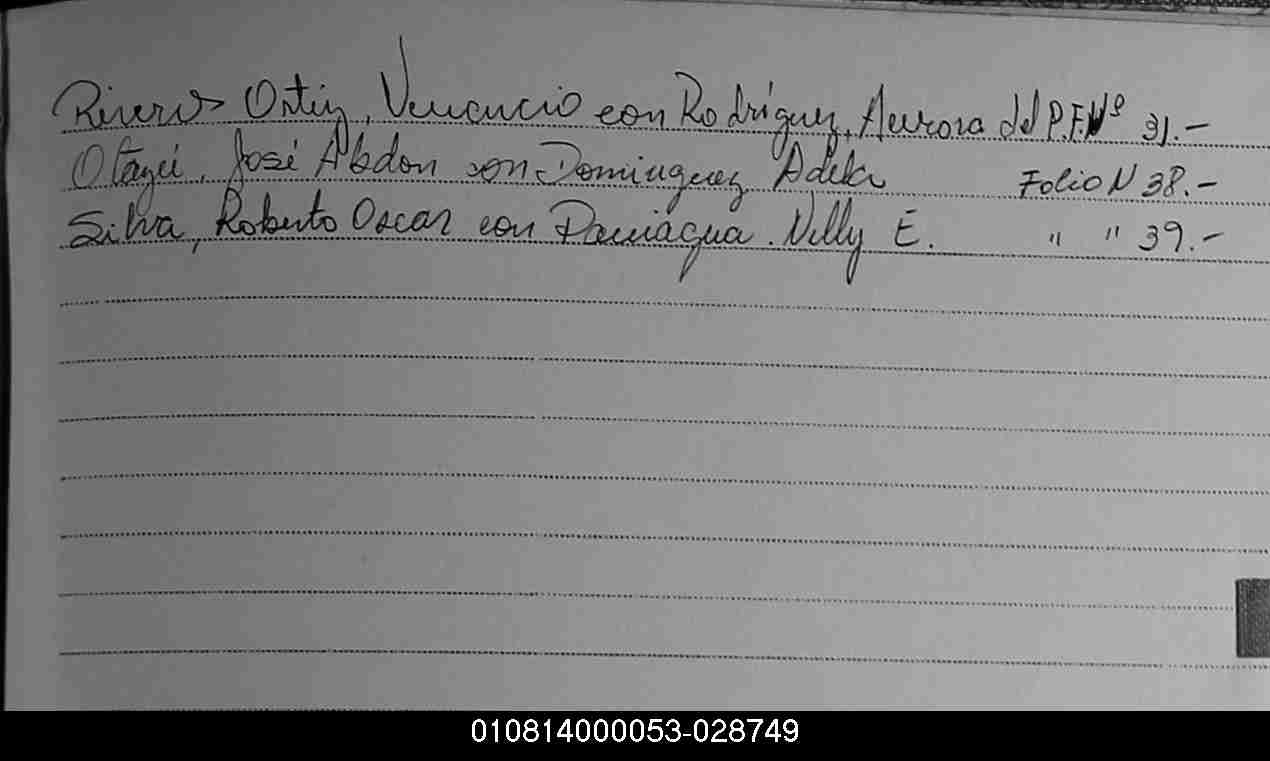 Riveros Ortiz, Venancio con Rodríguez, Aurora del P. F. Nº 31.-
José Abdon con Dominguez Adela Folio N 38.-
Silva, Roberto Oscar con Paniagua. Nelly E. " " 39.-
010814000053-028749